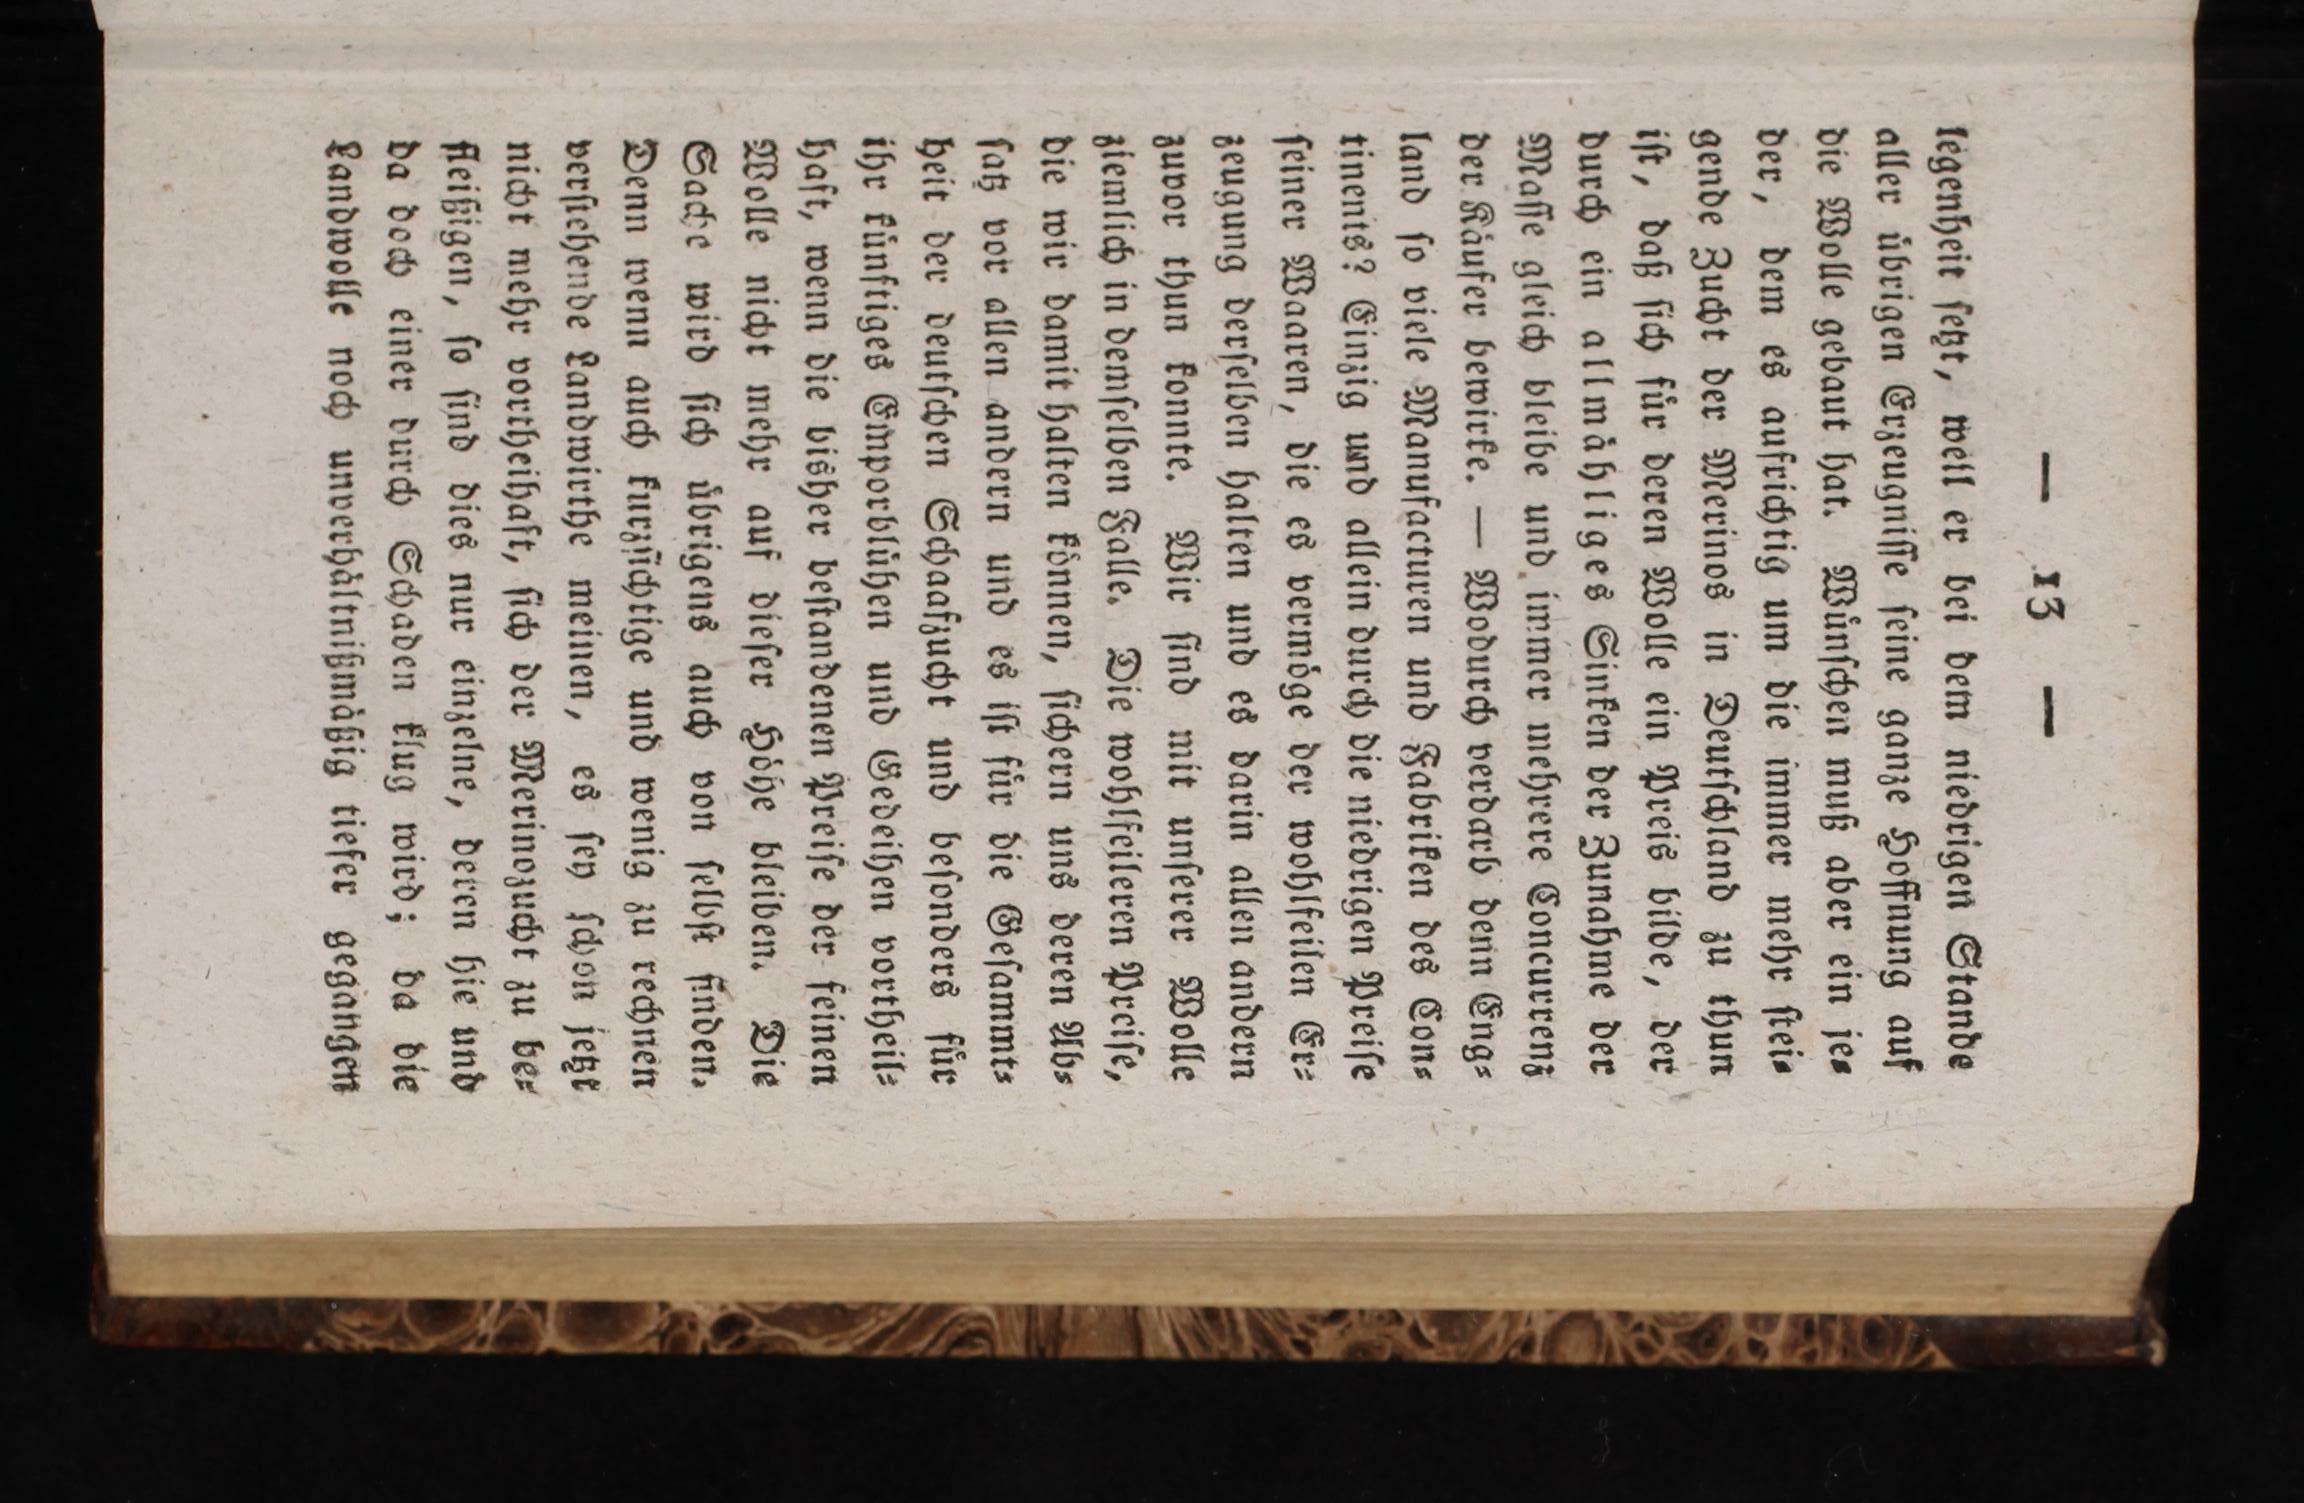 — 13 —
legenheit setzt, weil er bei dem niedrigen Stande
aller übrigen Erzeugnisse seine ganze Hoffnung auf
die Wolle gebaut hat. Wünschen muß aber ein je⸗
der, dem es aufrichtig um die immer mehr stei⸗
gende Zucht der Merinos in Deutschland zu thun
ist, daß sich für deren Wolle ein Preis bilde, der
durch ein allmähliges Sinken der Zunahme der
Masse gleich bleibe und immer mehrere Concurrenz
der Käufer bewirke. — Wodurch verdarb denn Eng⸗
land so viele Manufacturen und Fabriken des Con⸗
tinents? Einzig und allein durch die niedrigen Preise
seiner Waaren, die es vermöge der wohlfeilen Er⸗
zeugung derselben halten und es darin allen andern
zuvor thun konnte. Wir sind mit unserer Wolle
ziemlich in demselben Falle. Die wohlfeileren Preise,
die wir damit halten können, sichern uns deren Ab⸗
satz vor allen andern und es ist für die Gesammt⸗
heit der deutschen Schaafzucht und besonders für
ihr künftiges Emporblühen und Gedeihen vortheil⸗
haft, wenn die bisher bestandenen Preise der feinen
Wolle nicht mehr auf dieser Höhe bleiben. Die
Sache wird sich übrigens auch von selbst finden.
Denn wenn auch kurzsichtige und wenig zu rechnen
verstehende Landwirthe meinen, es sey schon jetzt
nicht mehr vortheihaft, sich der Merinozucht zu be⸗
fleißigen, so sind dies nur einzelne, deren hie und
da doch einer durch Schaden klug wird; da die
Landwolle noch unverhältnißmäßig tiefer gegangen